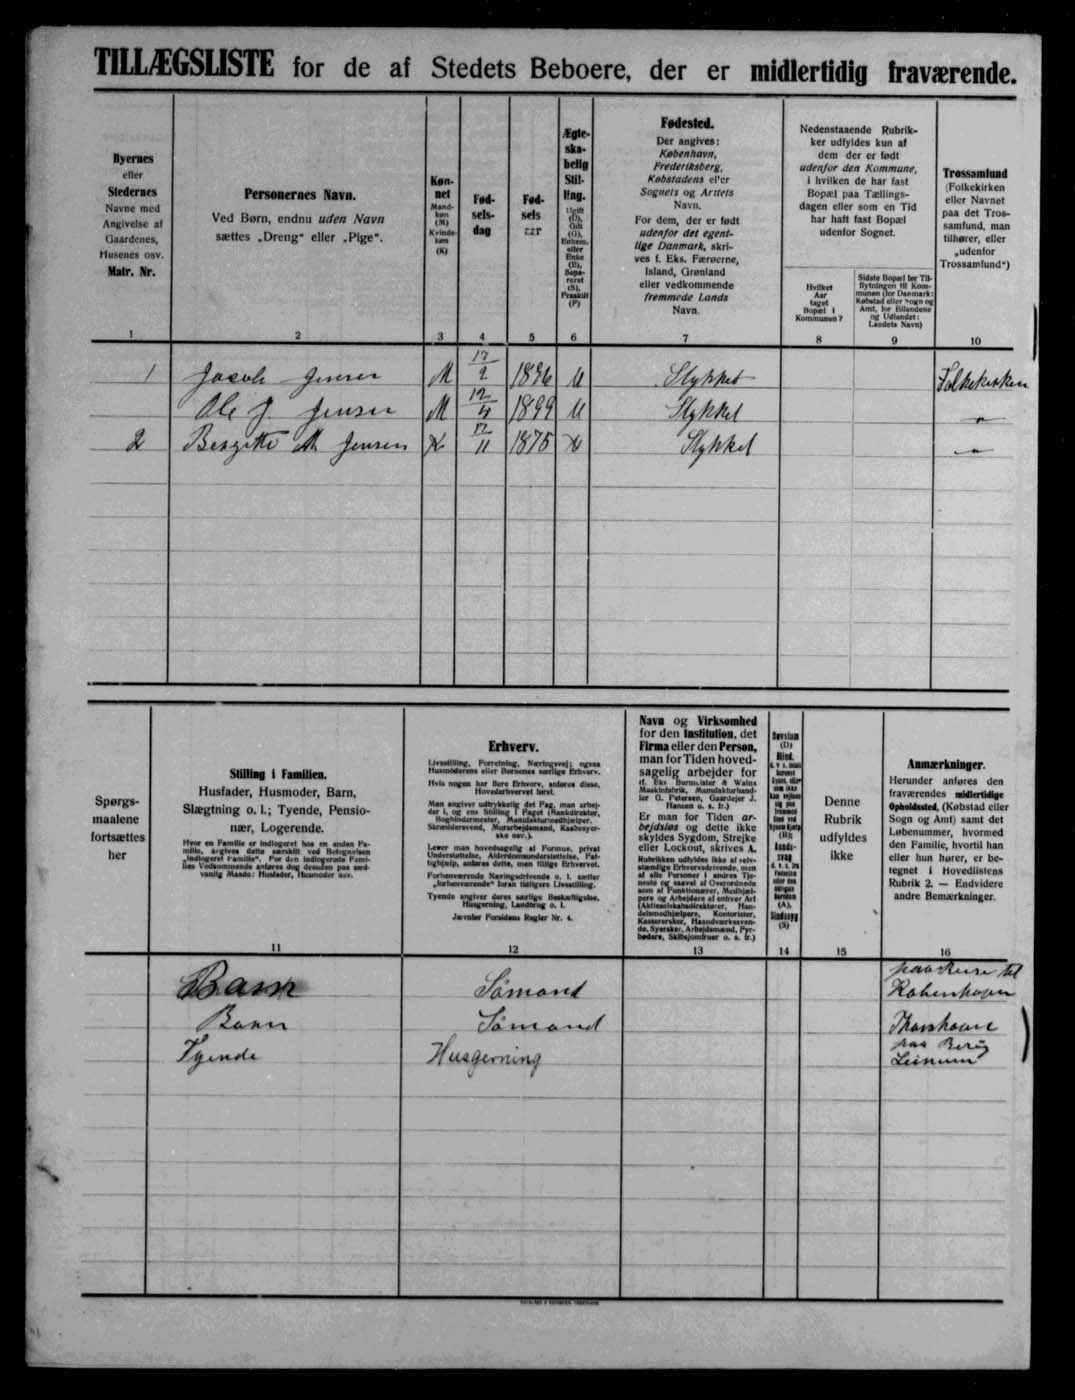 TILLÆGSLISTE for de af Stedets Beboere, der er midlertidig fraværende.
Byernes
eller
Stedernes
Navne med
Angivelse af
Gaardenes,
Husenes osv.
Matr. Nr.
1
Personernes Navn.
Ved Børn, endnu uden Navn
sættes „Dreng“ eller „Pige“.
2
Køn-
net
Mand-
køn
(M)
Kvinde-
køn
(K)
3
Fød-
sels-
dag
4
Fød-
sels
5
Ægte-
ska-
belig
Stil-
ling.
Ugift
(U),
Gift
(G),
Enkem.
eller
Enke
(E),
Sepa-
reret
(S),
Fraskilt
(F)
6
Fødested.
Der angives:
København,
Frederiksberg,
Købstadens eller
Sognets og Amtets
Navn.
For dem, der er født
udenfor det egent-
lige Danmark, skri-
ves f. Eks. Færøerne,
Island, Grønland
eller vedkommende
fremmede Lands
Navn.
7
Nedenstaaende Rubrik-
ker udfyldes kun af
dem der er født
udenfor den Kommune,
i hvilken de har fast
Bopæl paa Tællings-
dagen eller som en Tid
har haft fast Bopæl
udenfor Sognet.
Hvilket
Aar
taget
Bopæl i
Kommunen?
8
Sidste Bopæl før Til-
flytningen til Kom-
munen (for Danmark:
Købstad eller Sogn og
Amt, for Bilandene
og Udlandet:
Landets Navn)
9
Trossamfund
(Folkekirken
eller Navnet
paa det Tros-
samfund, man
tilhører, eller
„udenfor
Trossamfund“)
10
1 Jacob Jensen M 17/2 1896 U Stykket Folkekirken
Ole J. Jensen M 12/4 1899 U Stykket "
2 Bergitte M Jensen K 11 1875 Stykket "
Spørgs-
maalene
fortsættes
her
Stilling i Familien.
Husfader, Husmoder, Barn,
Slægtning o. l.; Tyende, Pensio-
nær, Logerende.
Hvor en Familie er indlogeret hos en anden Fa-
milie, angives dette særskilt ved Betegnelsen
„Indlogeret Familie“. For den indlogerede Fami-
lies Vedkommende anføres dog desuden paa sed-
vanlig Maade: Husfader, Husmoder osv.
11
Erhverv.
Livsstilling, Forretning, Næringsvej; ogsaa
Husmoderens eller Børnenes særlige Erhverv.
Hvis nogen har flere Erhverv, anføres disse,
Hovederhvervet først.
Man angiver udtrykkelig det Fag, man arbej-
der i, og ens Stilling i Faget (Mælkedirektør,
Bogbindermester, Manufakturmedhjælper,
Skræddersvend, Murarbejdsmand, Kaabesyer-
ske osv.).
Lever man hovedsagelig af Formue, privat
Understøttelse, Alderdomsunderstøttelse, Fat-
tighjælp, anføres dette, men tillige Erhvervet.
Forhenværende Næringsdrivende o. l. sætter
„forhenværende“ foran tidligere Livsstilling.
Tyende angiver deres særlige Beskæftigelse,
Husgerning, Landbrug o. l.
Jævnfør Forsidens Regler Nr. 4.
12
Navn og Virksomhed
for den Institution, det
Firma eller den Person,
man for Tiden hoved-
sagelig arbejder for
(f. Eks. Burmeister & Wains
Maskinfabrik, Manufakturhand-
ler G. Petersen, Gaardejer J.
Hansen o. s. fr.)
Er man for Tiden ar-
bejdsløs og dette ikke
skyldes Sygdom, Strejke
eller Lockout, skrives A.
Rubrikken udfyldes ikke af selv-
stændige Erhvervsdrivende, men
af alle Personer i andres Tje-
neste og saavel af Overordnede
som af Funktionærer, Medhjæl-
pere og Arbejdere af enhver Art
(Aktieselskabsdirektører, Han-
delsmedhjælpere, Kontorister,
Kassererskér, Haandværkssven-
de, Syersker, Arbejdsmænd, Fyr-
bødere, Skibsjomfruer o. s. fr.)
13
Døvstum
(D)
Blind,
(B);
Aands-
svag
(A),
Sindssyg
(S)
14
Denne
Rubrik
udfyldes
ikke
15
Anmærkninger.
Herunder anføres den
fraværendes midlertidige
Opholdssted, (Købstad eller
Sogn og Amt) samt det
Løbenummer, hvormed
den Familie, hvortil han
eller hun hører, er be-
tegnet i Hovedlistens
Rubrik 2. — Endvidere
andre Bemærkninger.
16
Barn Sømand paa Reise til
Kobenhavn
Barn Sømand Thorshavn
Tyende Husgerning paa Besøg
Leinum